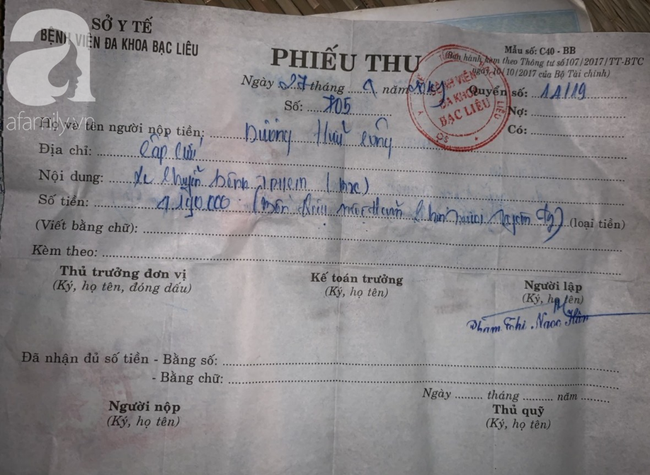 SỞ Y TẾ
BỆNH VIỆN ĐA KHOA BẠC LIÊU
afamily.vn
PHIẾU THU
Mẫu số: C40 - BB
(Ban hành kèm theo Thông tư số 107/2017/TT-BTC
ngày 10/10/2017 của Bộ Tài chính)
BỆNH VIỆN
ĐA KHOA
BẠC LIÊU
Ngày 27 tháng 9 năm
Quyển số: 11/19
Số: 705
Nợ:
Họ và tên người nộp tiền: Dương Hữu Công
Có:
Địa chỉ: Cấp Cứu
Nội dung: Xe chuyển bệnh
Số tiền: 4.190.000 (Bốn triệu một trăm chín mươi đ) (loại tiền)
(Viết bằng chữ):
Kèm theo:
Thủ trưởng đơn vị
(Ký, họ tên, đóng dấu)
Kế toán trưởng
(Ký, họ tên)
Người lập
(Ký, họ tên)
Phạm Thị Ngọc Hân
Đã nhận đủ số tiền - Bằng số:
- Bằng chữ:
Ngày ......... tháng ......... năm .........
Người nộp
(Ký, họ tên)
Thủ quỹ
(Ký, họ tên)